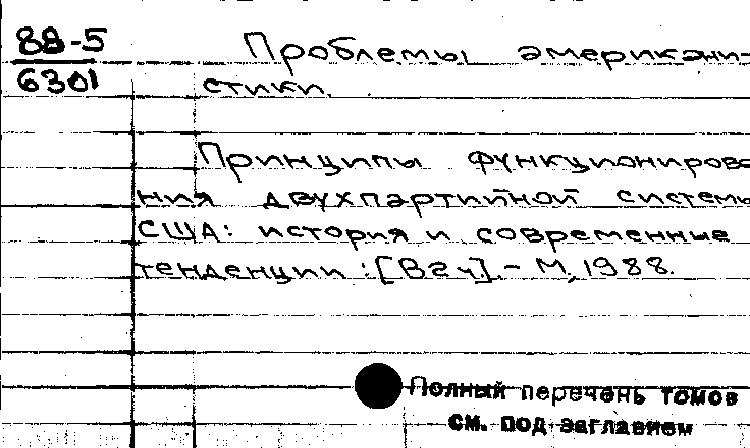 88-5
6301
Проблемы американи-
стики.
Принципы функционирова
ния двухпартийной системы
США: история и современные
тенденции: [В 2 ч]. - М, 1988.
Полный перечень томов
см. под заглавием